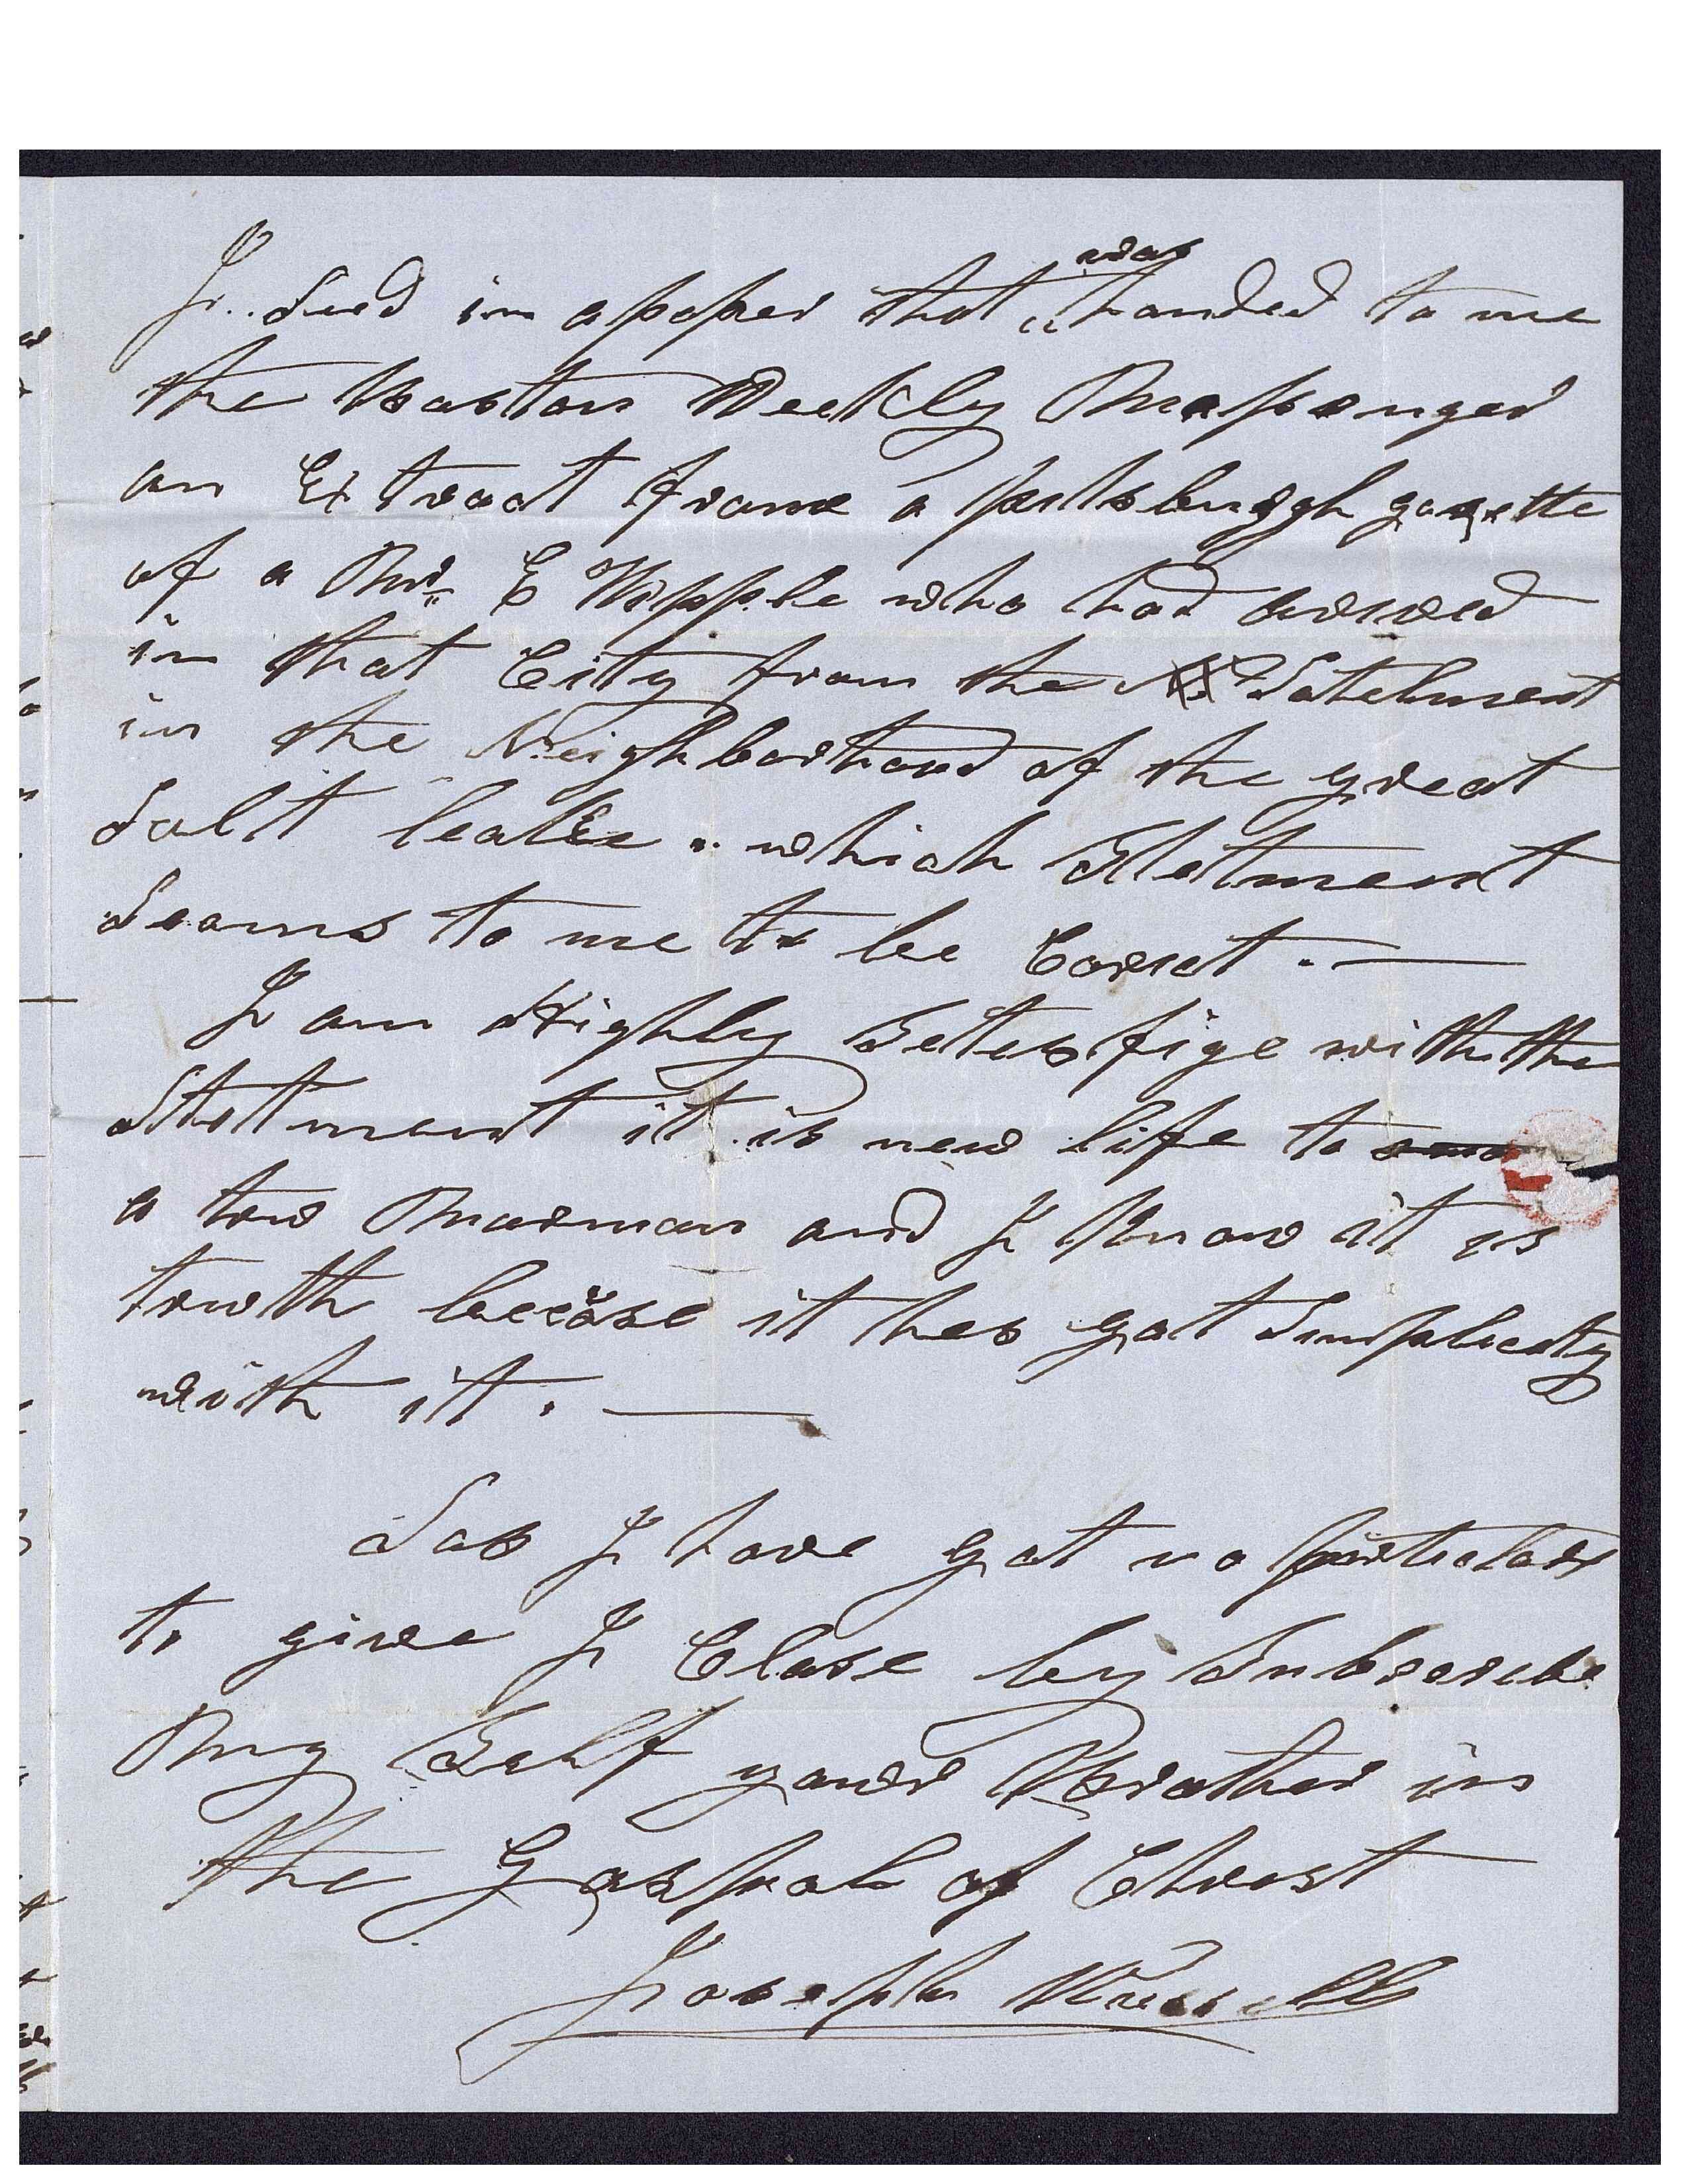 I.. Sued in a paper that was handed to me
the Boston Weekly Messenger
an Extract frome a pittsburggh gazette
of a Mr. E Wipple who had arived
in that City from the Satelment
in the Neighborhood of the great
Salt leake. which Stetment
Seams to me to be Corect.
I am Highly Setesfige with the
Stetment it is new life to
a trew Mormon and I know it is
trewth becose it hes got Simplecity
with itt.
Sas I have got no particlars
to give I Close by Subscribe
My Self your Brother in
the Gospal of Christ
Joseph Russell